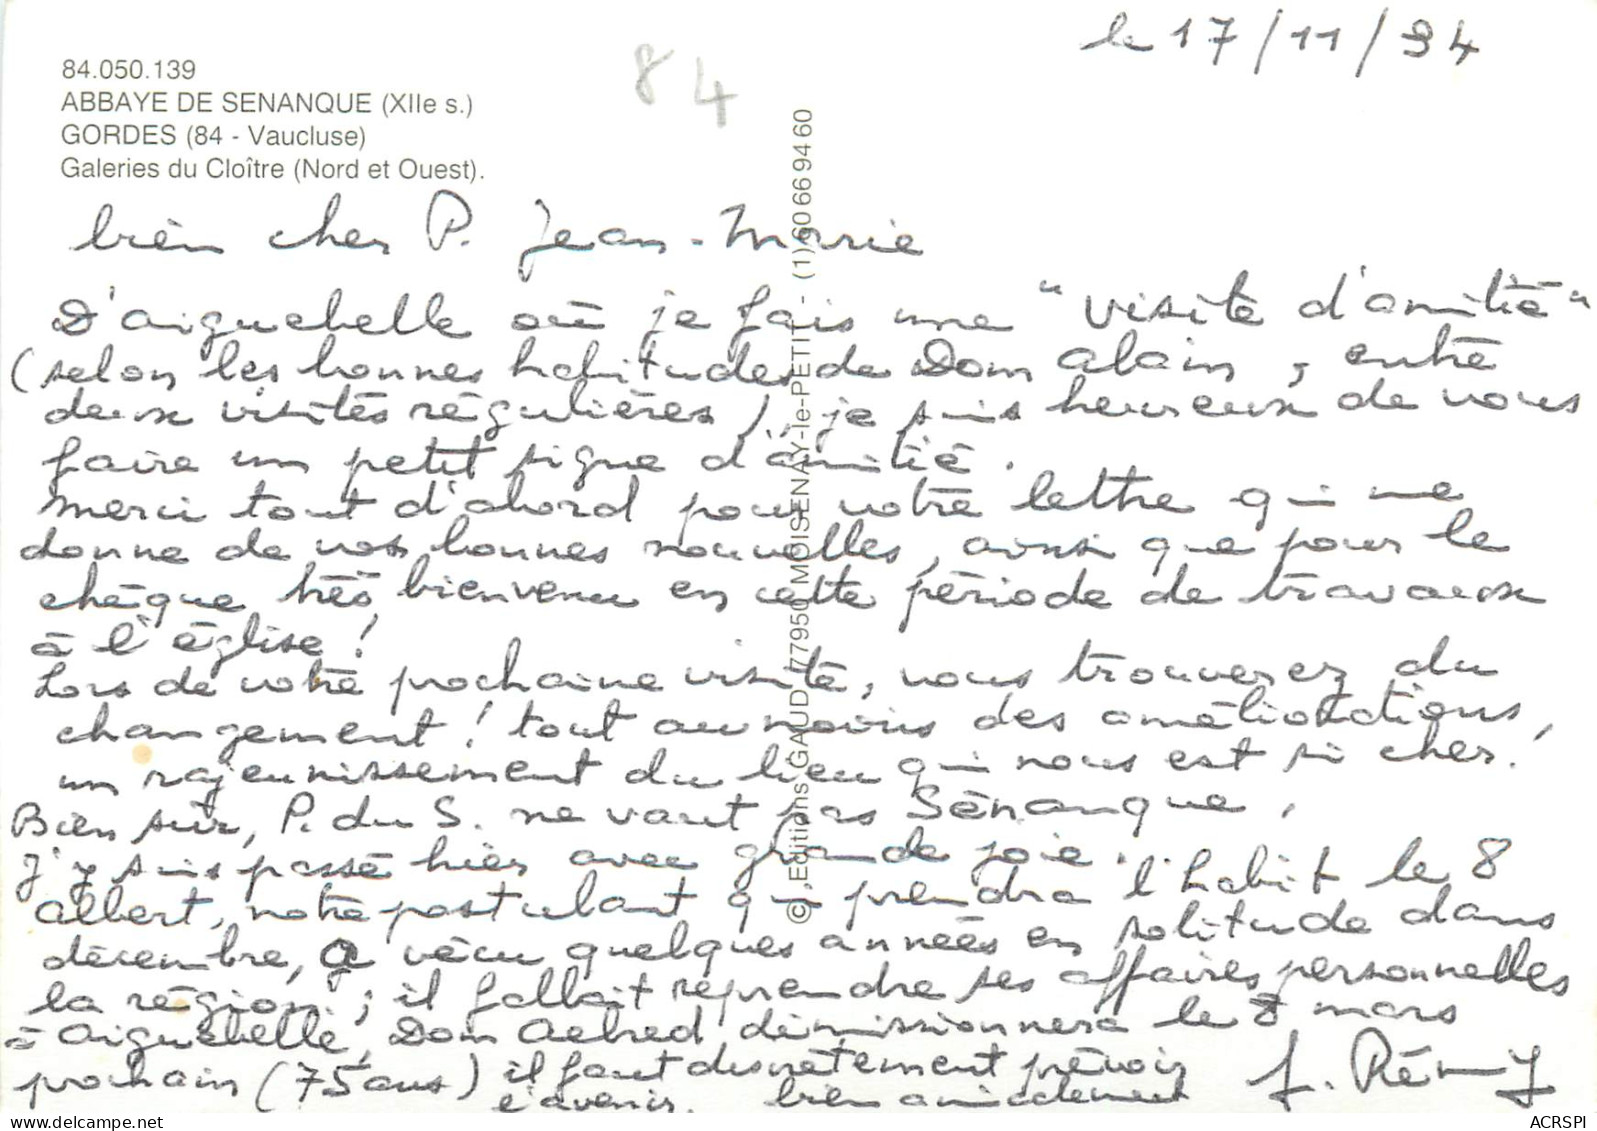 le 17/11/94
84
84.050.139
ABBAYE DE SENANQUE (XIIe s.)
GORDES (84 - Vaucluse)
Galeries du Cloître (Nord et Ouest).
© Editions GAUD 77950 MOISENAY-le-PETIT - (1) 60 66 94 60
bien cher P. Jean-Marie
D'aiguebelle où je fais une "visite d'amitié"
(selon les bonnes habitudes de Dom Alain, entre
deux visites régulières), je suis heureux de vous
faire un petit signe d'amitié.
Merci tout d'abord pour votre lettre qui me
donne de vos bonnes nouvelles, ainsi que pour le
chèque très bienvenu en cette période de travaux
à l'église !
Lors de votre prochaine visite, vous trouverez du
changement ! tout au moins des améliorations,
un rajeunissement du lieu qui nous est si cher !
Bien sûr, P. du S. ne vaut pas Sénanque,
J'y suis passé hier avec grande joie.
Albert, notre postulant qui prendra l'habit le 8
décembre, a vécu quelques années en solitude dans
la région ; il fallait reprendre ses affaires personnelles
à Aiguebelle, Dom Aelred démissionnera le 8 mars
prochain (75 ans) il faut discrètement prévoir
l'avenir. bien amicalement f. Rémy
ACRSPI